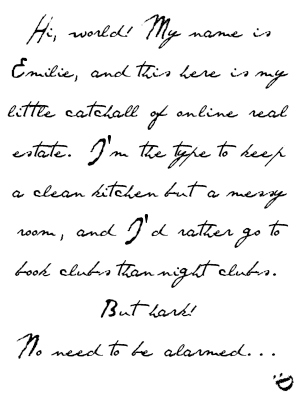 Hi, world! My name is
Emilie, and this here is my
little catchall of online real
estate. I'm the type to keep
a clean kitchen but a messy
room, and I'd rather go to
book clubs than night clubs.
But hark!
No need to be alarmed...
:D